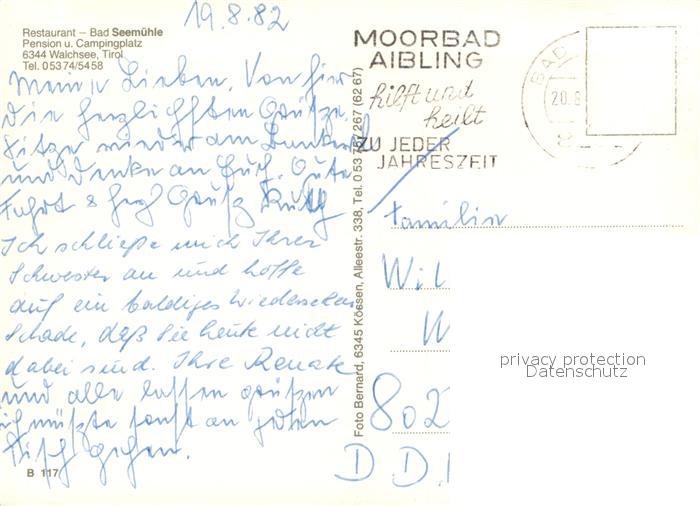 19.8.82
Restaurant – Bad Seemühle
Pension u. Campingplatz
6344 Walchsee, Tirol
Tel. 05374/5458
Meine Lieben. Von hier
die herzlichsten Grüße.
Sitze wieder am
und denke an Euch. Gute
Fahrt & herzl Grüße Ruth
Ich schließe mich Ihrer
Schwester an und hoffe
auf ein baldiges Wiedersehen
Schade, daß Sie heute nicht
dabei sind. Ihre Renate
und alle lassen grüßen
ich müßte sonst an jeden
Tisch gehen.
B 117
Foto Bernard, 6345 Kössen, Alleestr. 338, Tel. 0 53 75/ 267 (62 67)
MOORBAD
AIBLING
hilft und
heilt
ZU JEDER
JAHRESZEIT
BAD
20.8
8
Familie
Wil
W
802
DDR
privacy protection
Datenschutz